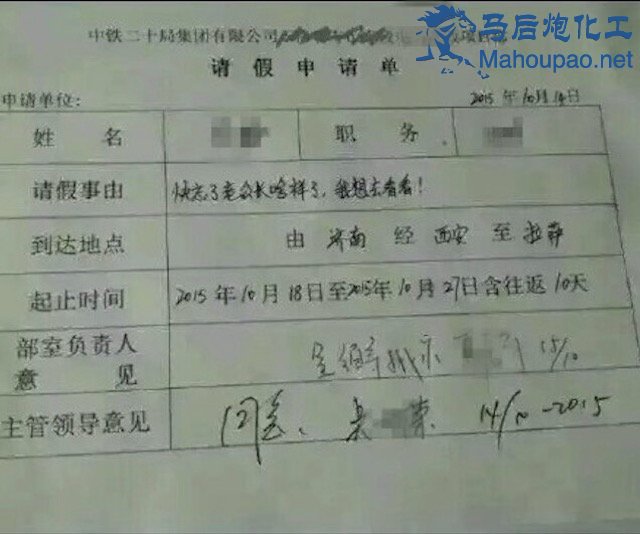 马后炮化工
Mahoupao.net
中铁二十局集团有限公司
请假申请单
申请单位：
2015年10月14日
姓名 职务
请假事由 快忘了老公长啥样了，我想去看看！
到达地点 由 济南 经 西安 至 拉萨
起止时间 2015年10月18日至2015年10月27日含往返10天
部室负责人
意见 呈 批示 15/10
主管领导意见 同意、 14/10-2015